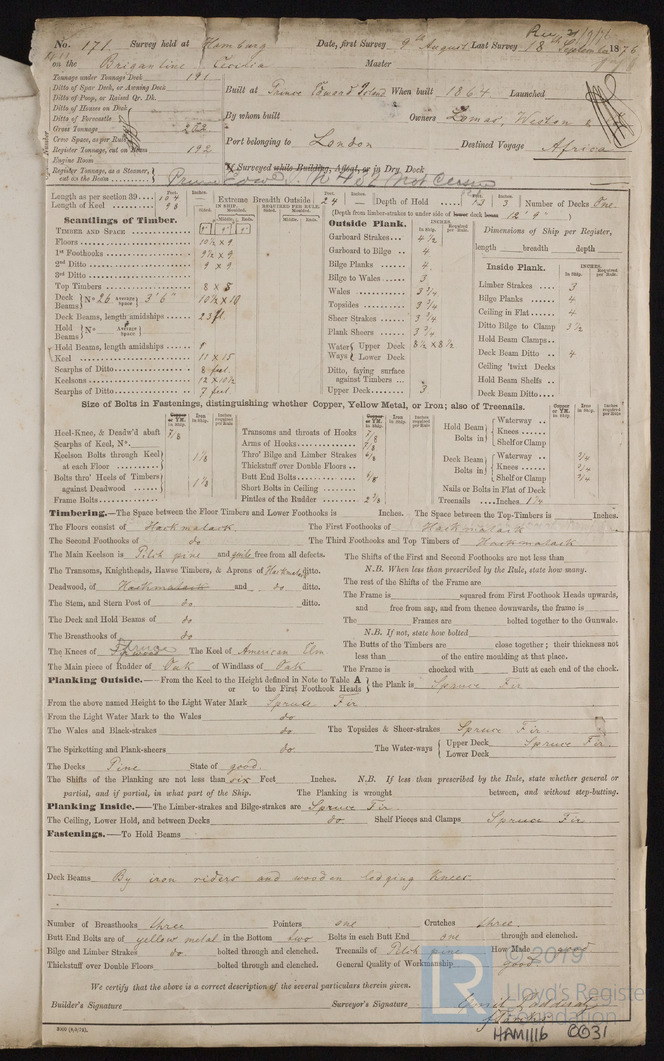 No. 171. Survey held at Hamburg Date, first Survey 9th August Last Survey 18th September 1876
on the Brigantine Cecilia Master
Tonnage under Tonnage Deck 191
Ditto of Spar Deck, or Awning Deck
Ditto of Poop, or Raised Qr. Dk.
Ditto of Houses on Deck
Ditto of Forecastle
Gross Tonnage
Crew Space, as per Rule
Register Tonnage, cut on Beam 192
Engine Room
Register Tonnage, as a Steamer, cut on the Beam
Built at Prince Edward Island When built 1864 Launched
By whom built Owners Lamas, Weston &
Port belonging to London Destined Voyage Africa
Surveyed while Building, Afloat, or in Dry Dock
Length as per section 39 104
Length of Keel 98
Extreme Breadth Outside 24 Depth of Hold 13 3 Number of Decks One
(Depth from limber-strakes to under side of lower deck beams 12' 9")
Scantlings of Timber.
TIMBER AND SPACE
Floors 10½ x 9
1st Foothooks 9½ x 9
2nd Ditto 9 x 9
3rd Ditto
Top Timbers 8 x 5
Deck Beams No 26 Average Space 3' 6" 10½ x 10
Deck Beams, length amidships 23 ft.
Hold Beams No Average Space
Hold Beams, length amidships
Keel 11 x 15
Scarphs of Ditto 8 feet
Keelsons 12 x 10½
Scarphs of Ditto 7 feet
Outside Plank.
Garboard Strakes 4½
Garboard to Bilge 4
Bilge Planks 4
Bilge to Wales 3
Wales 3¾
Topsides 3¾
Sheer Strakes 3¾
Plank Sheers 3¾
Water Ways Upper Deck 8½ x 8½
Lower Deck
Ditto, faying surface against Timbers
Upper Deck 3
Dimensions of Ship per Register,
length breadth depth
Inside Plank.
Limber Strakes 3
Bilge Planks 4
Ceiling in Flat 4
Ditto Bilge to Clamp 3½
Hold Beam Clamps
Deck Beam Ditto 4
Ceiling 'twixt Decks
Hold Beam Shelfs
Deck Beam Ditto
Size of Bolts in Fastenings, distinguishing whether Copper, Yellow Metal, or Iron; also of Treenails.
Heel-Knee, & Deadw'd abaft 7/8
Scarphs of Keel, No.
Keelson Bolts through Keel at each Floor 1⅛
Bolts thro' Heels of Timbers against Deadwood 1⅛
Frame Bolts
Transoms and throats of Hooks 7/8
Arms of Hooks 7/8
Thro' Bilge and Limber Strakes 6/8
Thickstuff over Double Floors
Butt End Bolts 6/8
Short Bolts in Ceiling
Pintles of the Rudder 2⅜
Hold Beam Bolts in Waterway
Knees
Shelf or Clamp
Deck Beam Bolts in Waterway 3/4
Knees 3/4
Shelf or Clamp 3/4
Nails or Bolts in Flat of Deck
Treenails Inches 1¼
Timbering.—The Space between the Floor Timbers and Lower Foothooks is Inches. The Space between the Top-Timbers is Inches.
The Floors consist of Hackmatack The First Foothooks of Hackmatack
The Second Foothooks of do The Third Foothooks and Top Timbers of Hackmatack
The Main Keelson is Pitch pine and quite free from all defects.
The Transoms, Knightheads, Hawse Timbers, & Aprons of Hackmatack ditto.
Deadwood, of Hackmatack and do ditto.
The Stem, and Stern Post of do ditto.
The Deck and Hold Beams of do
The Breasthooks of do
The Knees of Spruce The Keel of American Elm
The Main piece of Rudder of Oak of Windlass of Oak
The Shifts of the First and Second Foothooks are not less than
N.B. When less than prescribed by the Rule, state how many.
The rest of the Shifts of the Frame are
The Frame is squared from First Foothook Heads upwards,
and free from sap, and from thence downwards, the frame is
The Frames are bolted together to the Gunwale.
N.B. If not, state how bolted
The Butts of the Timbers are close together; their thickness not
less than of the entire moulding at that place.
The Frame is chocked with Butt at each end of the chock.
Planking Outside.—From the Keel to the Height defined in Note to Table A or to the First Foothook Heads the plank is Spruce Fir
From the above named Height to the Light Water Mark Spruce Fir
From the Light Water Mark to the Wales do
The Wales and Black-strakes do The Topsides & Sheer-strakes Spruce Fir
The Spirketting and Plank-sheers do The Water-ways Upper Deck Spruce Fir
Lower Deck
The Decks Pine State of good.
The Shifts of the Planking are not less than six Feet Inches. N.B. If less than prescribed by the Rule, state whether general or
partial, and if partial, in what part of the Ship. The Planking is wrought between, and without step-butting.
Planking Inside.—The Limber-strakes and Bilge-strakes are Spruce Fir.
The Ceiling, Lower Hold, and between Decks do. Shelf Pieces and Clamps Spruce Fir
Fastenings.—To Hold Beams
Deck Beams By iron riders and wooden lodging knees.
Number of Breasthooks three Pointers one Crutches three.
Butt End Bolts are of yellow metal in the Bottom two Bolts in each Butt End one through and clenched.
Bilge and Limber Strakes do bolted through and clenched. Treenails of Pitch pine How Made good
Thickstuff over Double Floors bolted through and clenched. General Quality of Workmanship good
We certify that the above is a correct description of the several particulars therein given.
Builder's Signature Surveyor's Signature
© 2019
Lloyd's Register
Foundation
HAM1116 0031